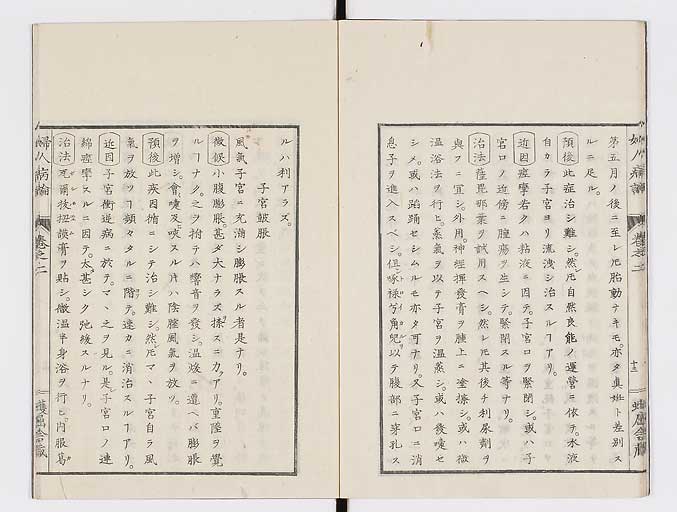 第五月ノ後ニ至レ𪜈胎動ナキモ。亦タ真妊ト差別ス
ルニ足ル。
預後此症治シ難シ。然𪜈自然良能ノ運營ニ依テ。水液
自カラ子宮ヨリ流洩シ治スルアリ。
近因痙攣若クハ粘液ニ因テ。子宮口ヲ緊閉シ。或ハ子
宮口ノ近傍ニ腫瘍ヲ生シテ。緊閉スル等ナリ。
治法薩毘那葉ヲ試用スヘシ。然レ𪜈其後チ利尿劑ヲ
與フニ宜シ。外用。神經揮發膏ヲ腫上ニ塗擦シ。或ハ微
温浴法ヲ行ヒ。蒸氣ヲ以テ子宮ヲ温蒸シ。或ハ發嚏セ
シメ。或ハ跳踊セシムルモ亦タ可ナリ。又子宮口ニ消
息子ヲ進入スベシ。但啄穆兮角兒以テ腹部ニ穿孔ス
十三
婦人病論
卷之二
ルハ利アラズ。
子宮皷脹
風氣子宮ニ充滿シ膨脹スル者是ナリ。
徴候小腹膨脹。甚ダ大ナラズ。揉スニ力アリ。重墜ヲ覺
ルーナク。之ヲ拊テハ響音ヲ發シ。温煖ニ遭ヘバ膨脹
ヲ増シ。會嚏及咳スル片ハ陰膣風氣ヲ放ツ。
預後此疾因循ニシテ治シ難シ。然𪜈マヽ子宮自ラ風
氣ヲ放ツー頻々タルニ階テ。速カニ消治スルーアリ。
近因子宮衝逆病ニ於テ。マヽ之ヲ見ル。是子宮口ノ連
綿痙攣スルニ因テ。太甚シク弛緩スルナリ。
治法尭爾抜扭謨膏ヲ貼シ。微温半身浴ヲ行ヒ。内服葛
婦人病論
卷之二